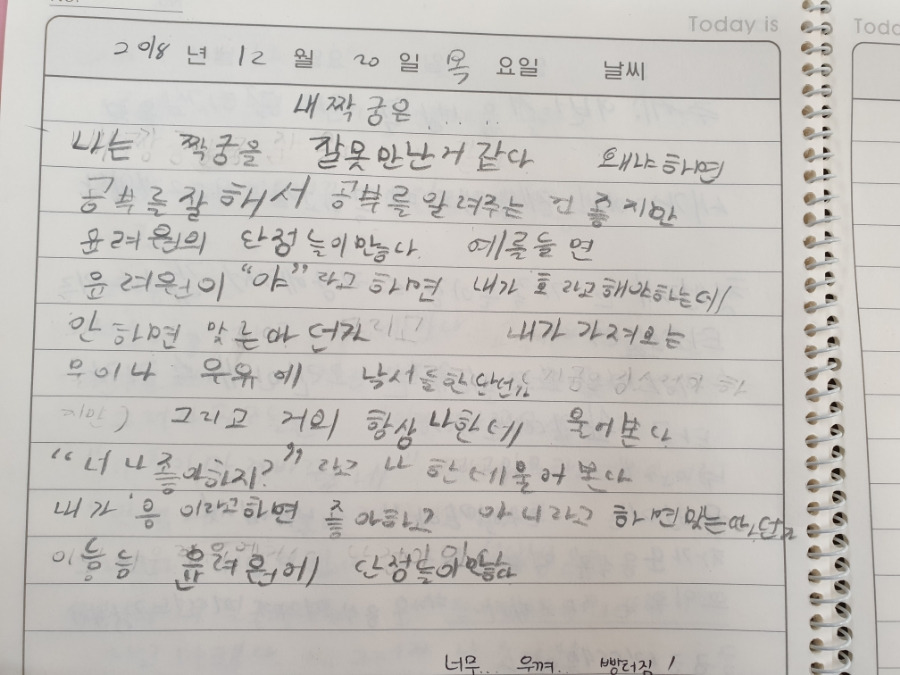 Today is
Toda
2018 년 12 월 20 일 목 요일 날씨
내 짝 궁은 ....
나는 짝궁을 잘못만난거 같다 왜냐하면
공부를잘 해서 공부를 알려주는 건 좋지만
윤려원의 단점 들이만놓다. 예를들면
윤려원이 "야" 라고 하면 내가 효 라고해야하는데
안 하면 맞는마 더라 내가 가져오는
무이나 우유에 낙서들한단
그리고 거의 항상 나한테 물어본다
"너 나 좋아하지?" 라고 나 한테물어본다
내가, 응 이라고하면 좋아하고 아니라고 하면맞는다
이등등 윤려원에 단점들이많다
너무... 우껴... 빵터짐!